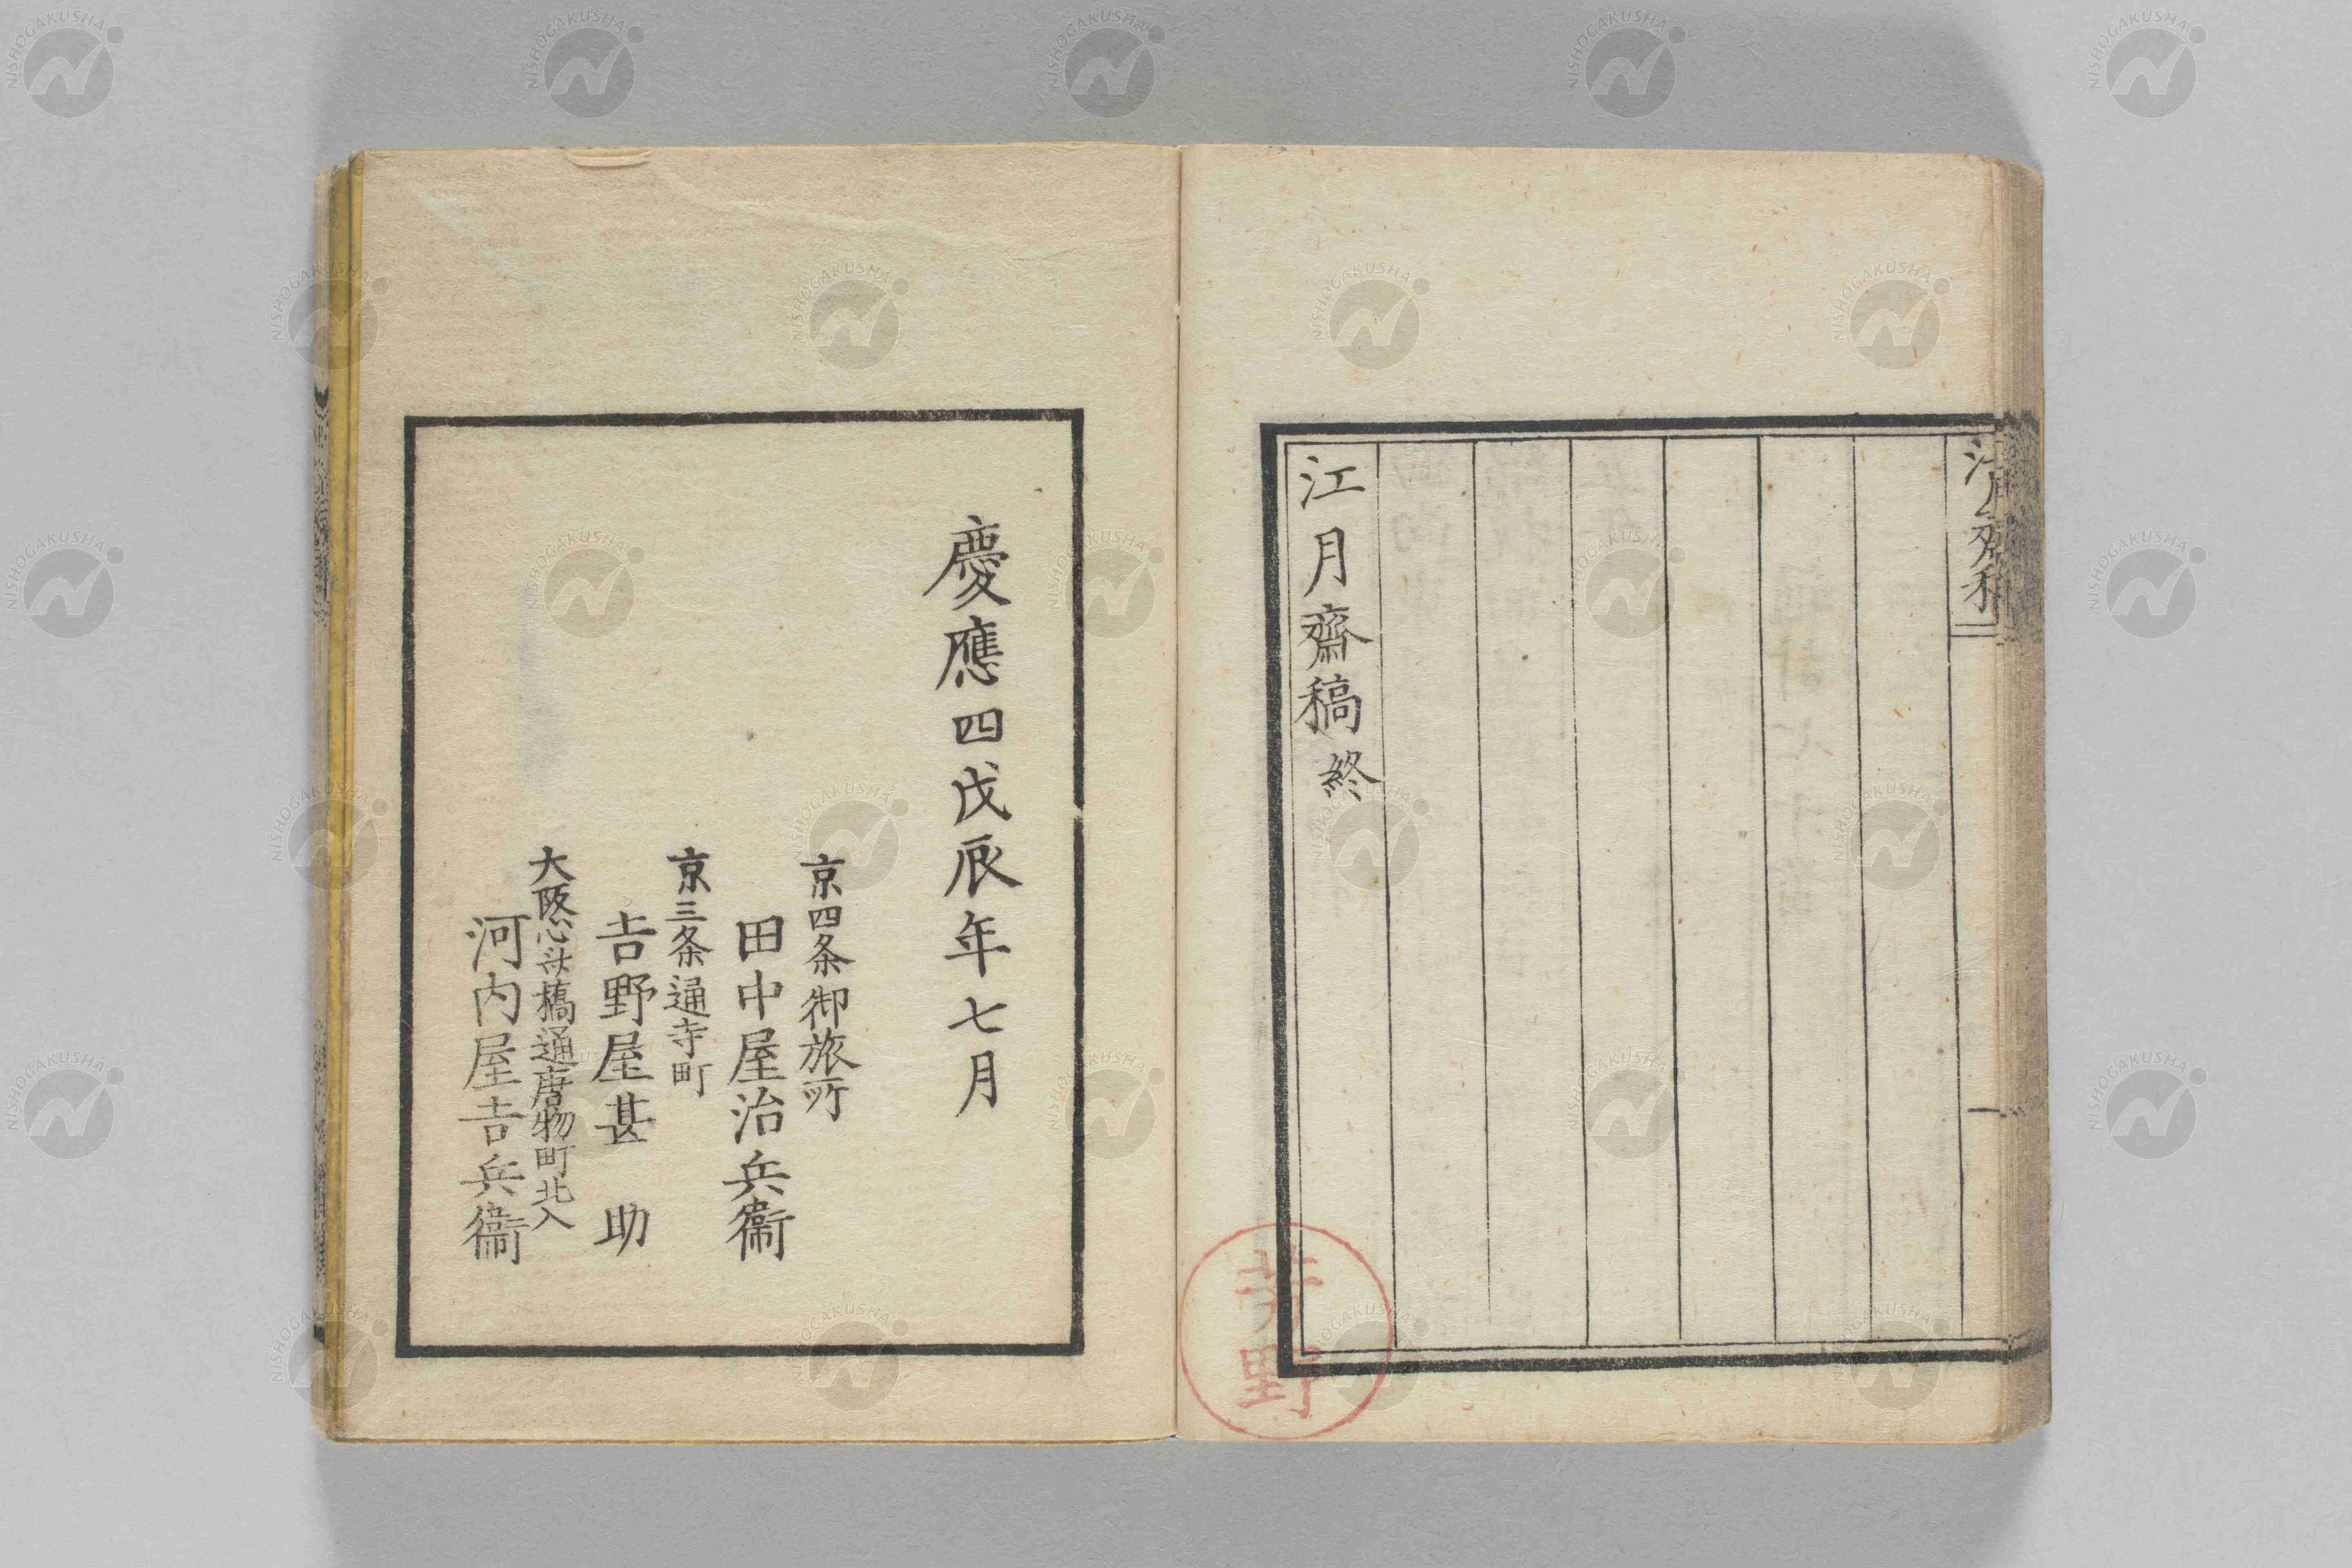 江月齋稿
江月齋稿 終
芳野
慶應四戊辰年七月
京四条御旅所
田中屋治兵衞
京三条通寺町
吉野屋甚助
大阪心斎橋通唐物町北入
河内屋吉兵衞
NISHOGAKUSHA